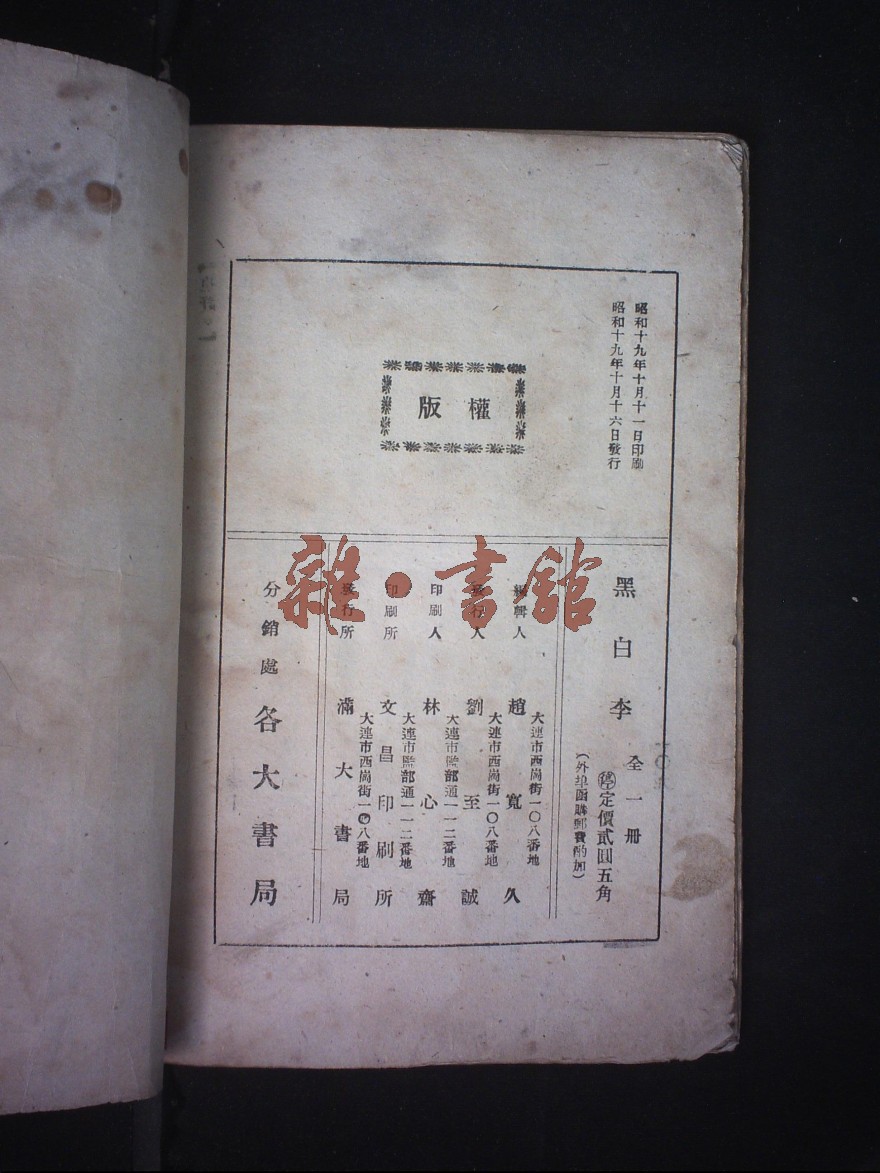 昭和十九年十月十一日印刷
昭和十九年十月十六日發行
版權
黑白李 全一冊
定價貳圓五角
(外埠函購郵費酌加)
大連市西崗街一〇八番地
編輯人 趙寬久
大連市西崗街一〇八番地
發行人 劉至誠
大連市監部通一一二番地
印刷人 林心齋
大連市監部通一一二番地
印刷所 文昌印刷所
大連市西崗街一〇八番地
發行所 滿大書局
分銷處 各大書局
雜·書館